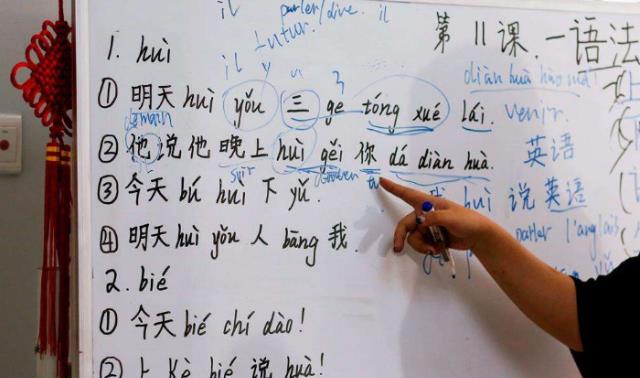 il parler/dire. il
第 11 课.一语法
futur.
1. huì
il y
diàn huà hào mǎ
3
① 明天 huì yǒu 三 ge tóng xué lái. venir.
demain
② 他说他晚上 huì gěi 你 dá diàn huà. 英语
soir
③ 今天 bú huì 下 yǔ. huì 说英语
parler l'anglais
④ 明天 huì yǒu 人 bāng 我.
2. bié
① 今天 bié chí dào!
② 上 kè bié 说 huà!